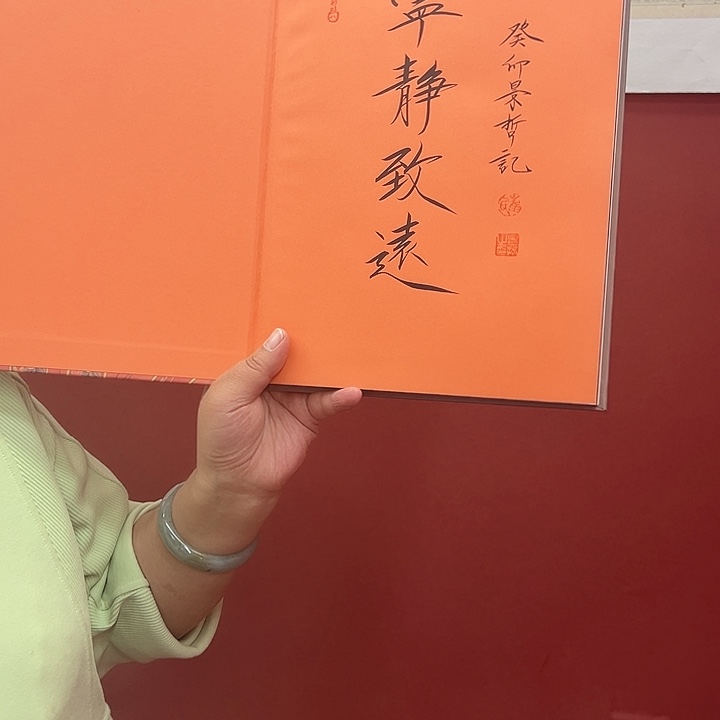 寧静致遠
癸卯景哲記